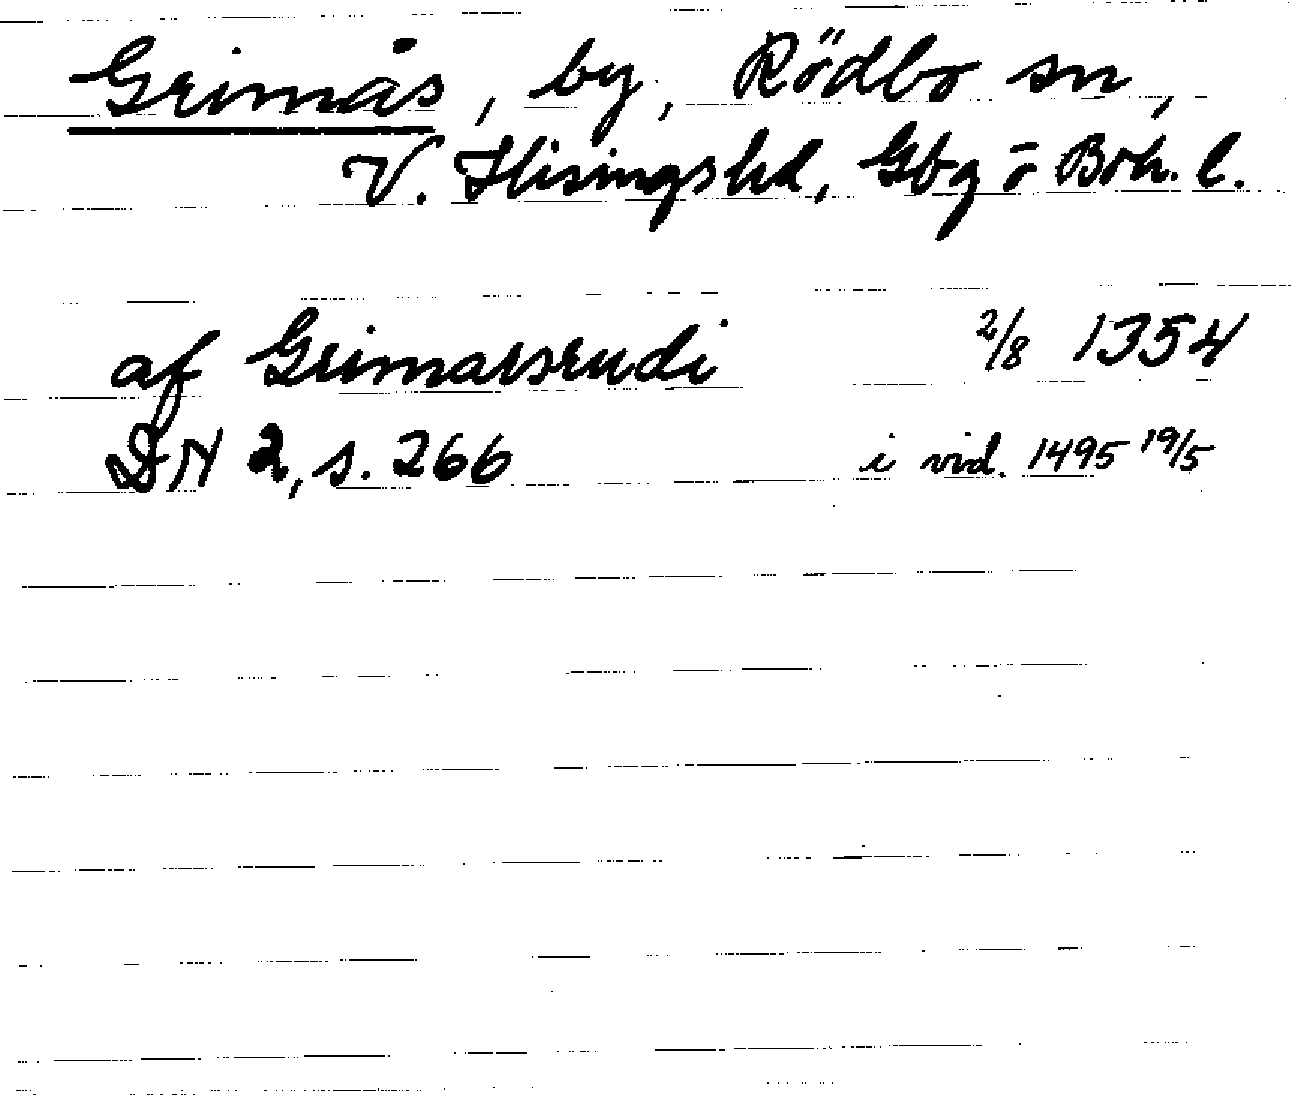 Grimås, by, Rödbo sn,
V. Hisings hd, Gbg o Boh. l.
af Grimarsrudi 2/8 1354
DN 2, s. 266 i vid. 1495 19/5